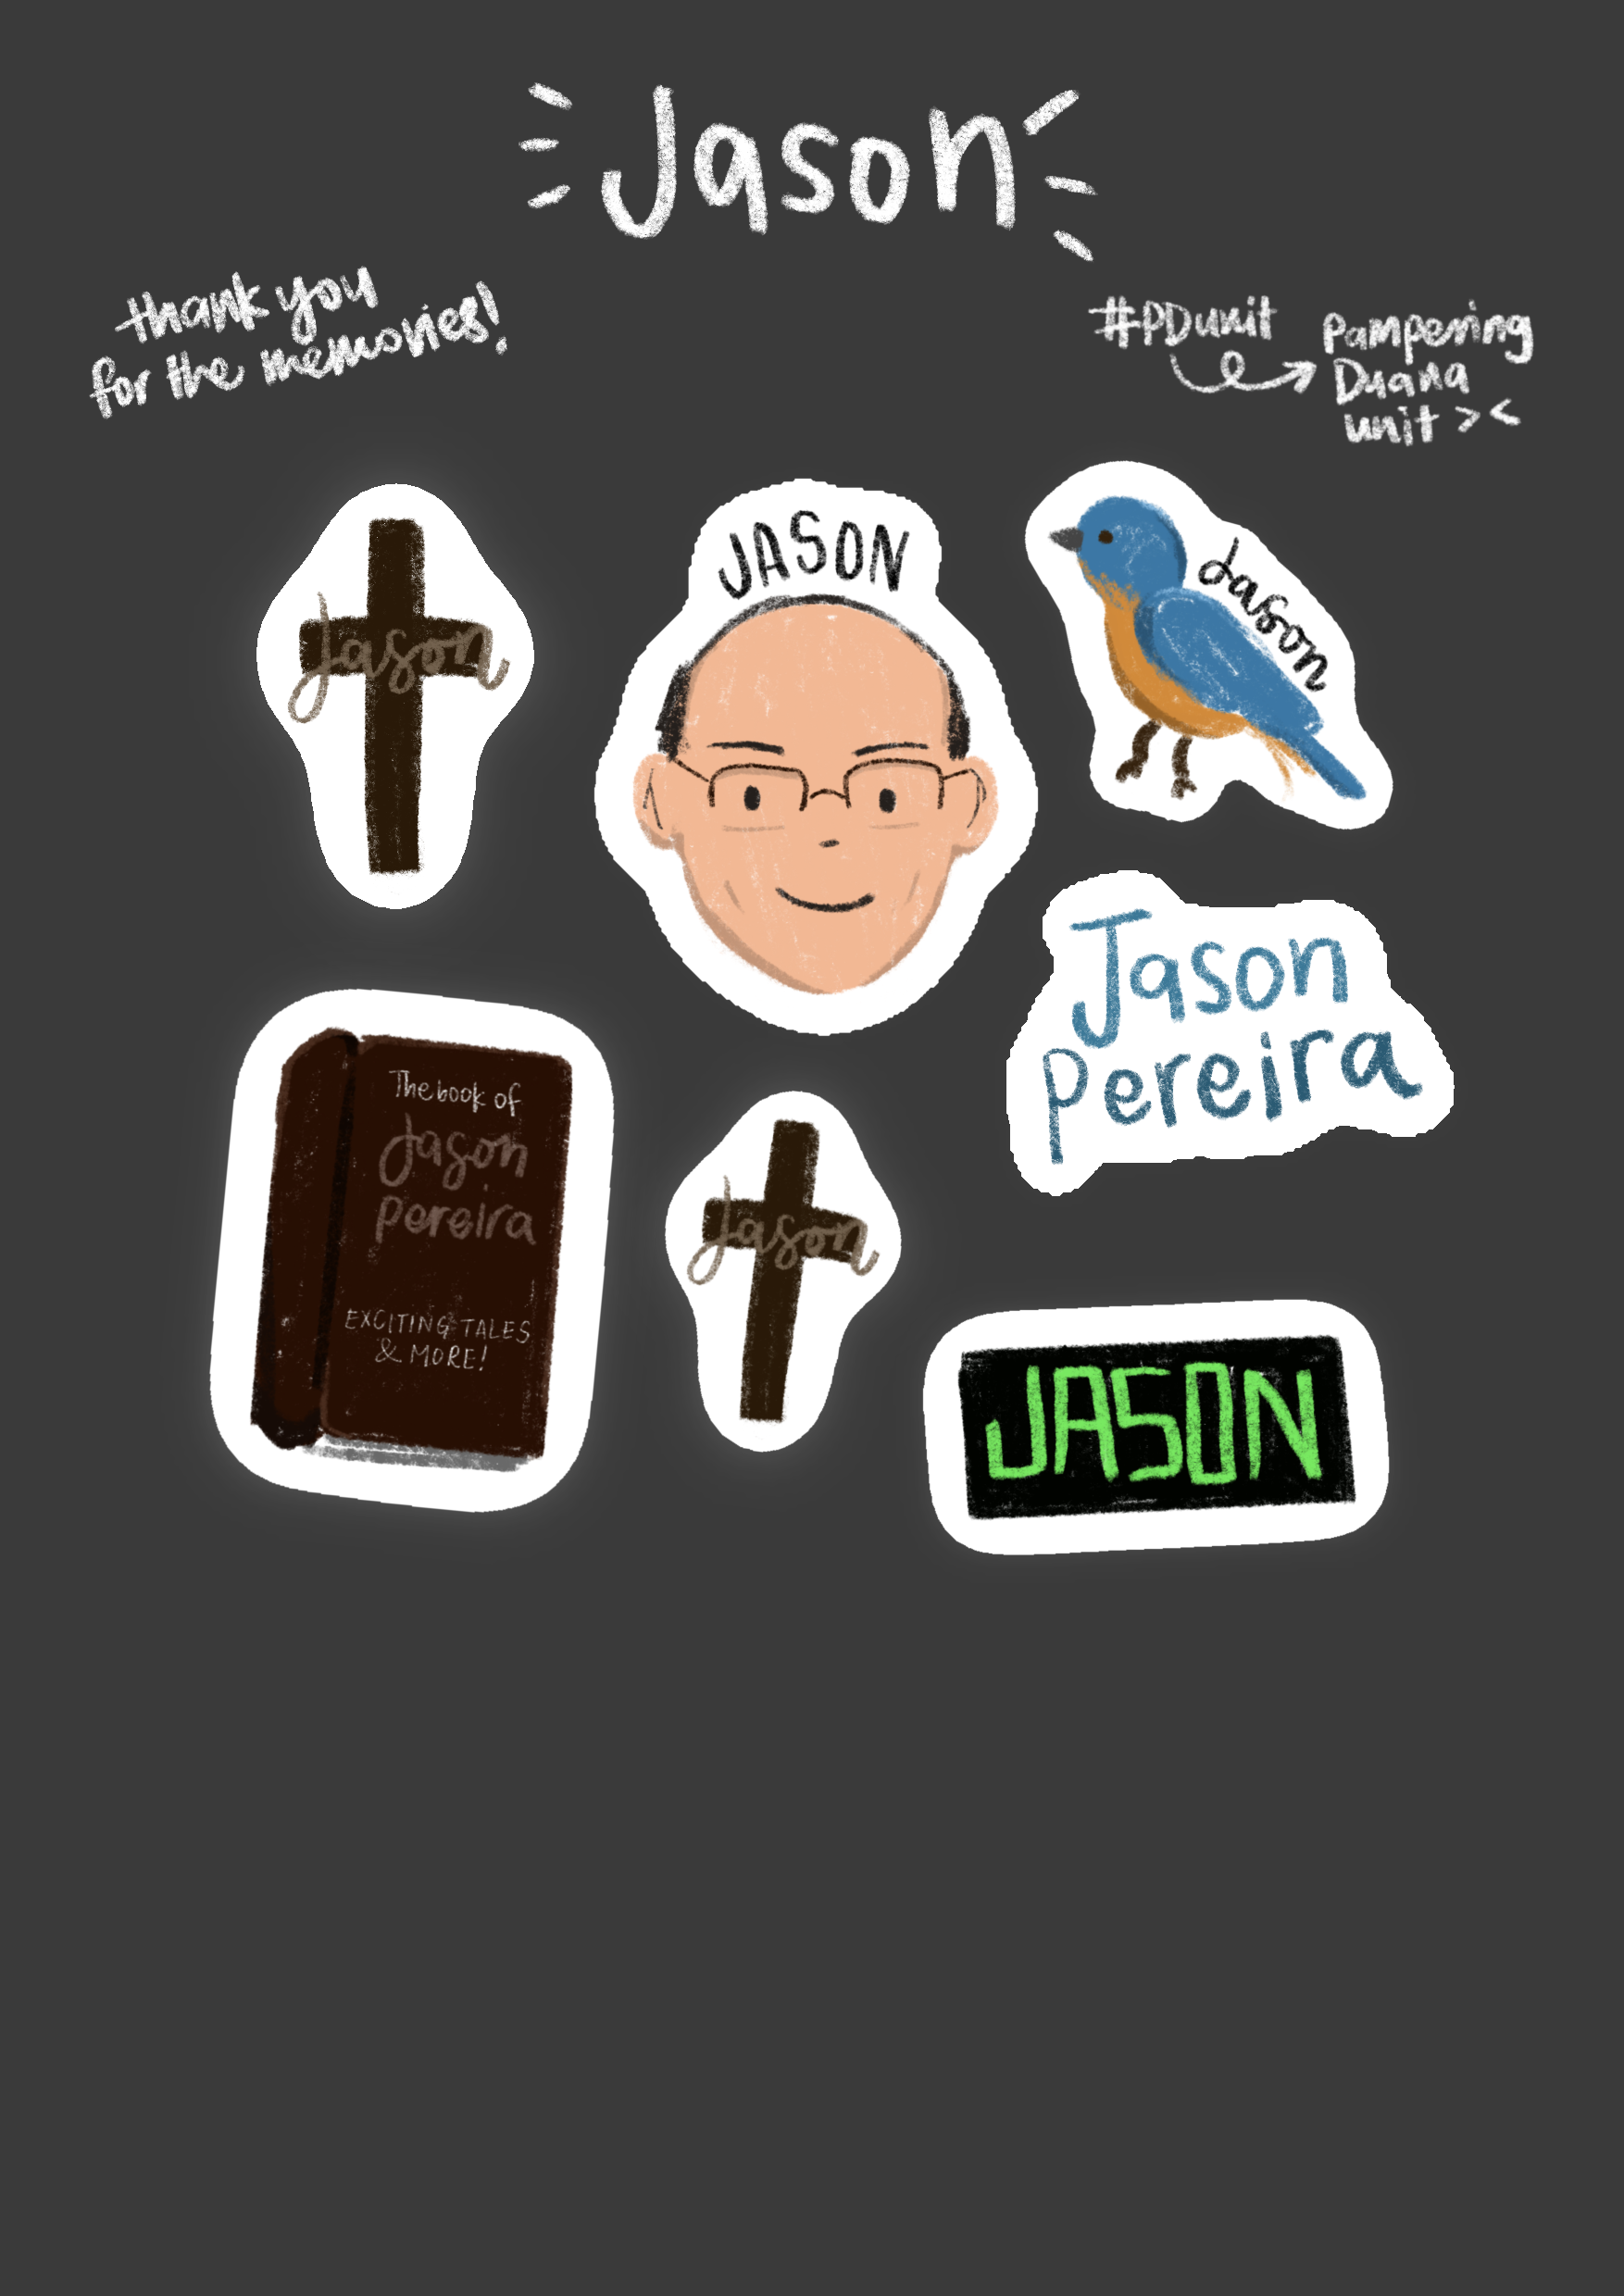 Jason
thank you
for the memories!
#PDunit
Pampering
Duana
unit > <
JASON
Jason
Jason
Jason
Pereira
The book of
Jason
Pereira
EXCITING TALES
& MORE!
Jason
JASON